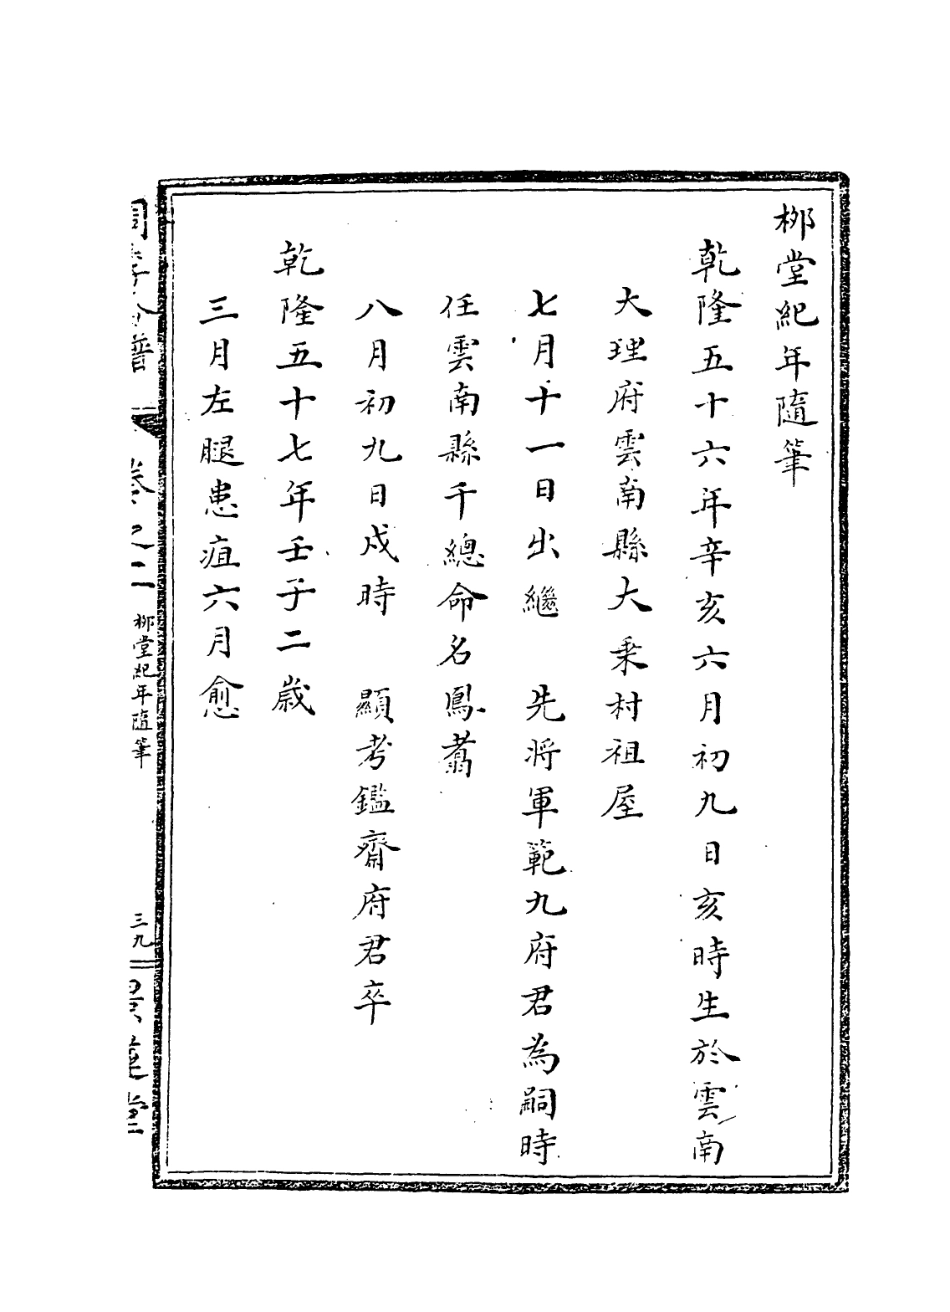 柳堂紀年隨筆
乾隆五十六年辛亥六月初九日亥時生於雲南
大理府雲南縣大乘村祖屋
七月十一日出繼　先將軍範九府君為嗣時
任雲南縣千總命名鳳翥
八月初九日戌時　顯考鑑齋府君卒
乾隆五十七年壬子二歲
三月左腿患疽六月愈
卷之二
柳堂紀年隨筆
三九